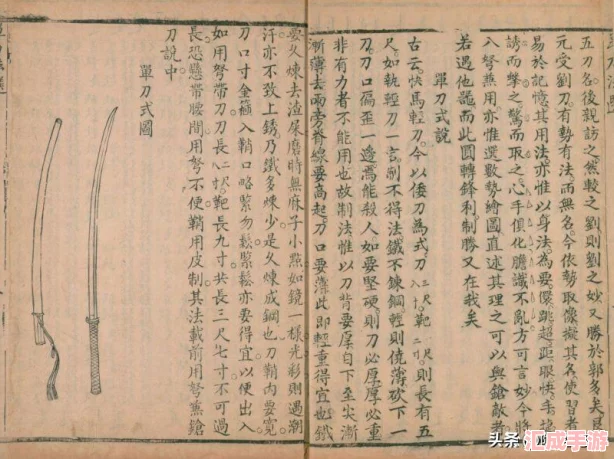 五刀名後親訪之然較之劉則劉之妙又勝於郭多矣
元受劉刀有勢有法而無名今依勢取像擬其名使習者
易於記憶其用法亦惟以身法為要儇跳超距眼快手
誘而擊之驚而取之心手俱化膽識不亂方可言妙今將
八弩燕用亦惟選數勢繪圖直述其理之可以與鎗敵者
若遇他噐而此圓轉鋒利制勝又在我矣
單刀式說
古云快馬輕刀今以倭刀為式刀三尺八寸靶一尺二寸則長有五
尺如執輕刀一言制不得法鐵不鍊鋼輕則僥薄砍下一
刀刀口偏歪一邊焉能殺人如要堅硬則刀必厚厚必重
非有力者不能用也故制法惟以刀背要厚自下至尖漸
漸薄去兩旁脊線要高起刀口要薄此即輕重得宜也鐵
要久煉去渣屎磨時無麻子小點如鏡一樣光彩則遇潮
汗亦不致上銹乃鐵多煉少是久煉成鋼也刀鞘內要寬
刀口寸金箍入鞘口略緊勿鬆緊鬆亦要得宜以便出入
如用弩帶刀刀長二尺八靶長九寸共長三尺七寸不可過
長恐懸帶腰間用弩不便鞘用皮制其法載前用弩燕鎗
刀說中
單刀式圖
头条
汇成手游